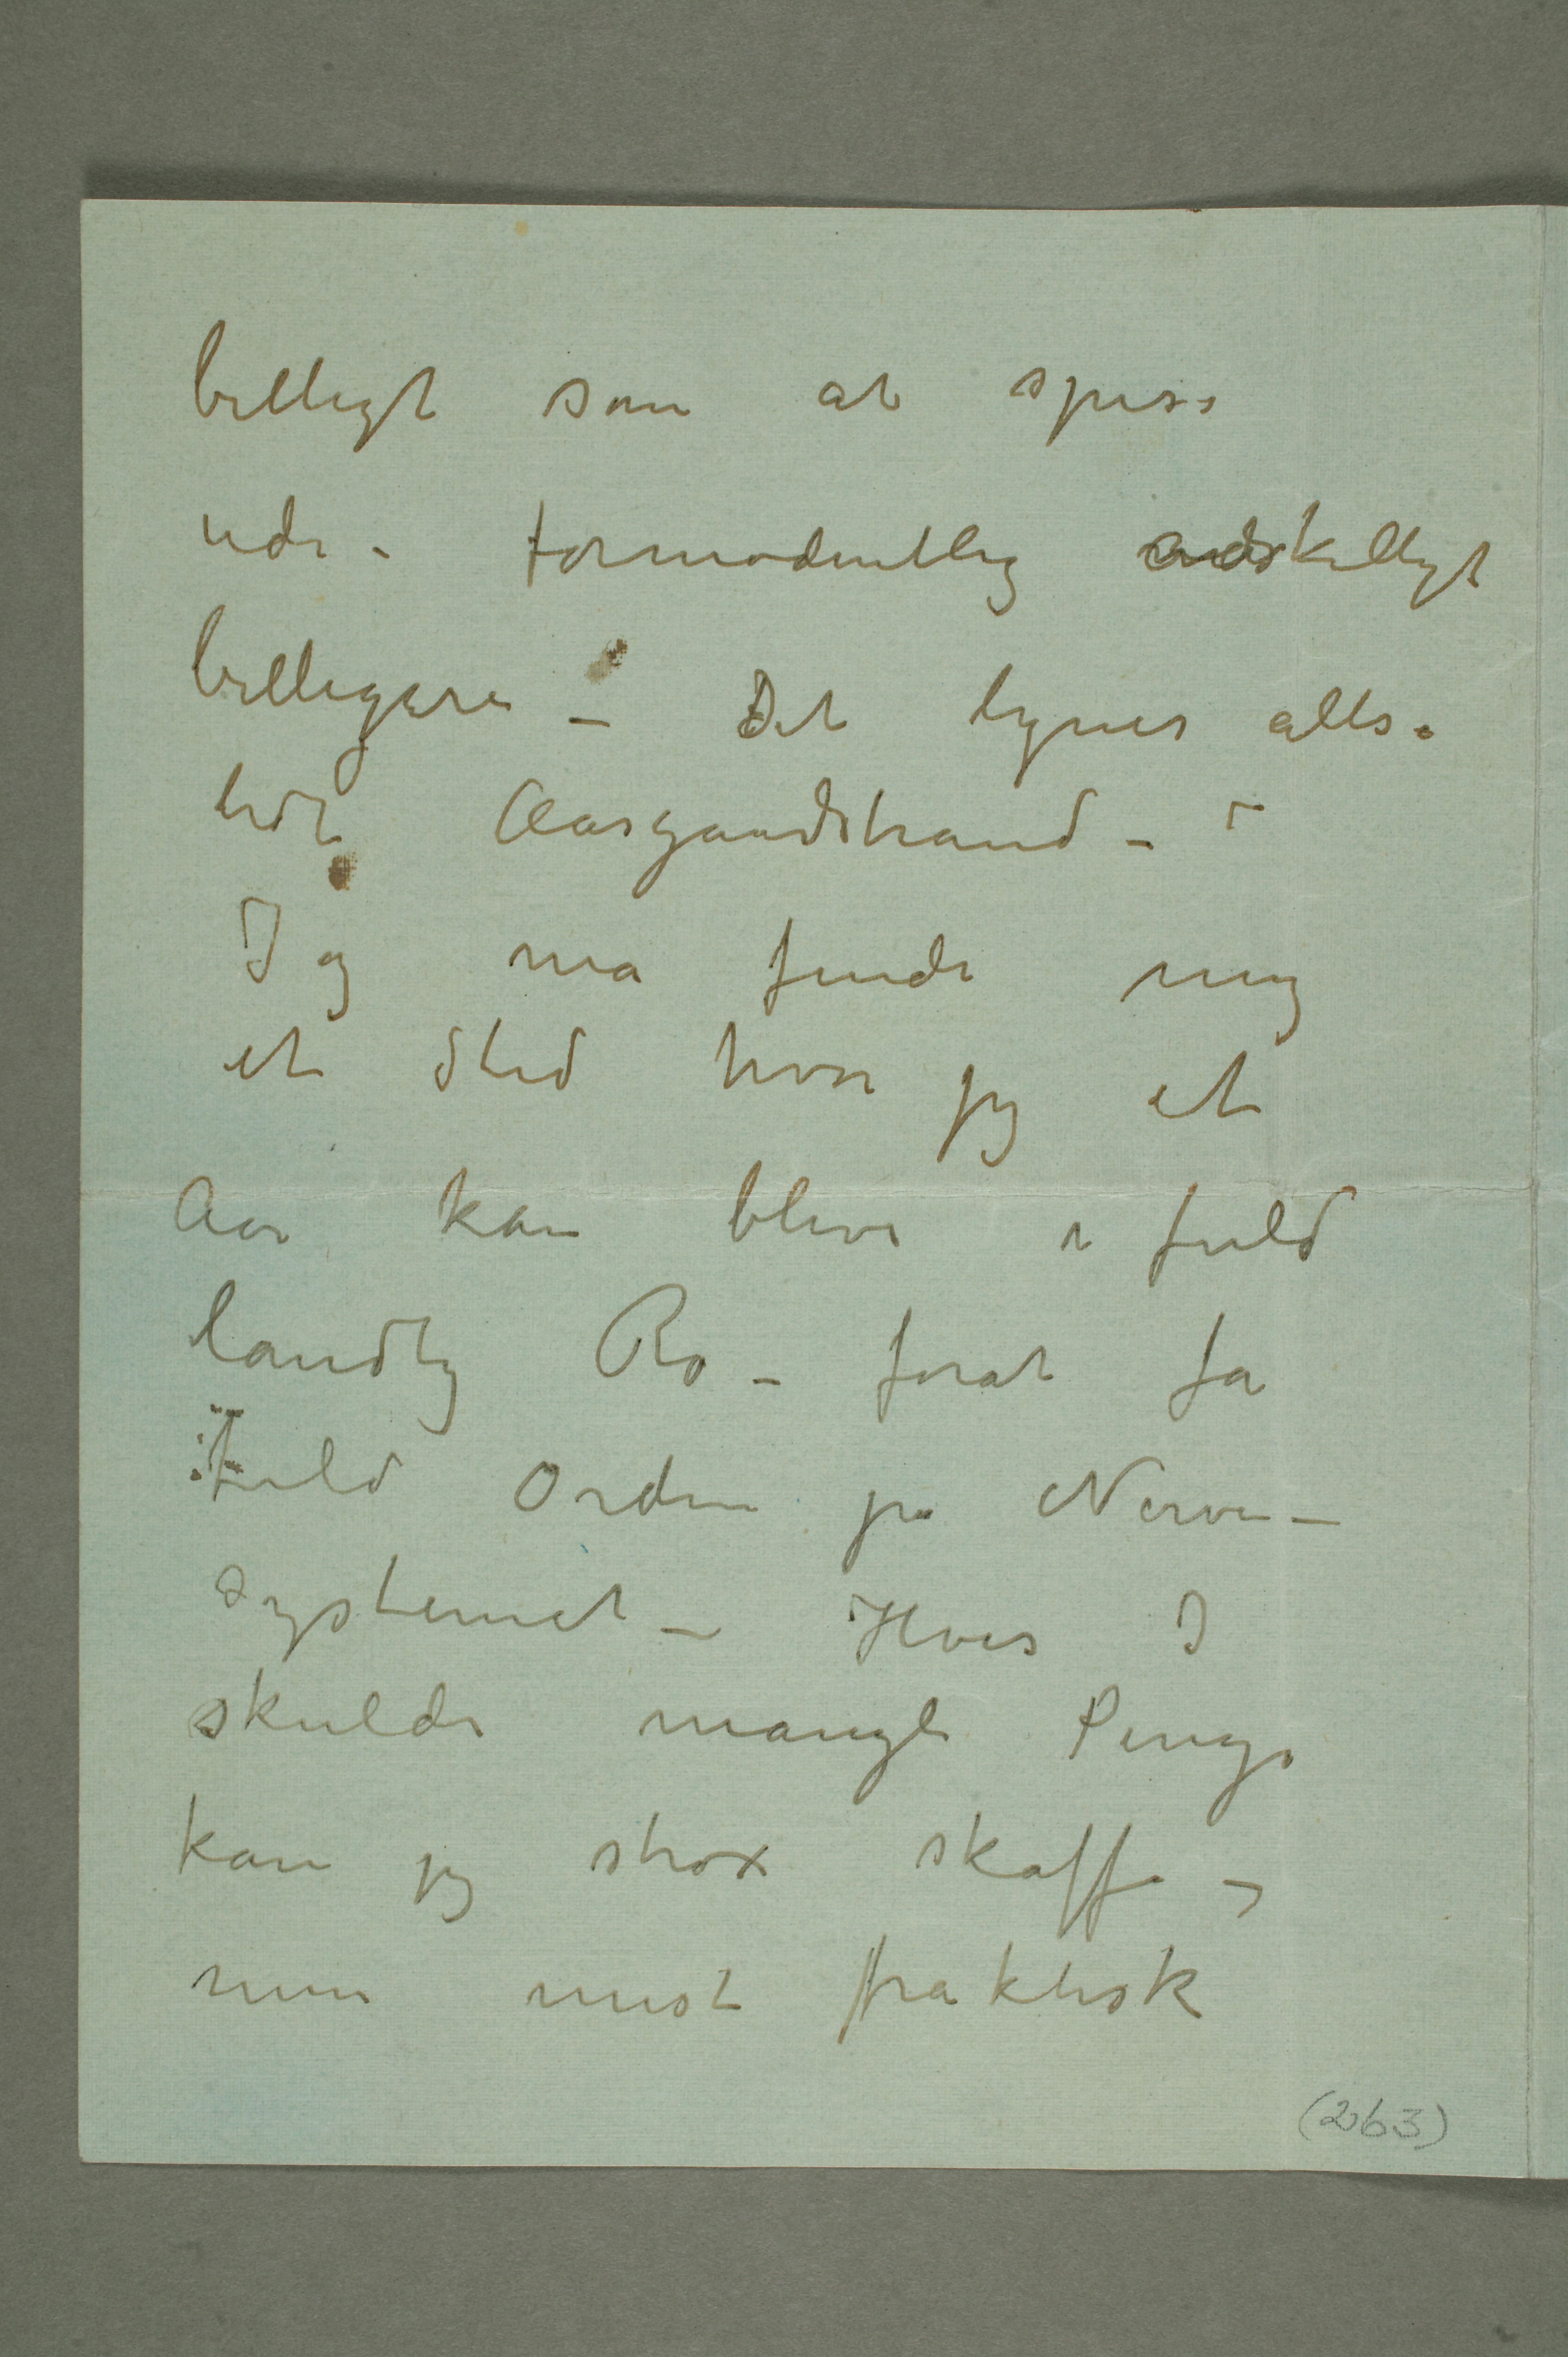 billigt som at spise
ude – formodentlig adskilligt
billigere – Det ligner altså
lidt Aasgaardstrand –
Jeg må finde mig
et Sted hvor jeg et
Aar kan blive i fuld
landlig Ro – forat få
fuld Orden på Nerve–
systemet – Hvis I
skulde mangle Penge
kan jeg strax skaffe –
min mest praktisk
(263)